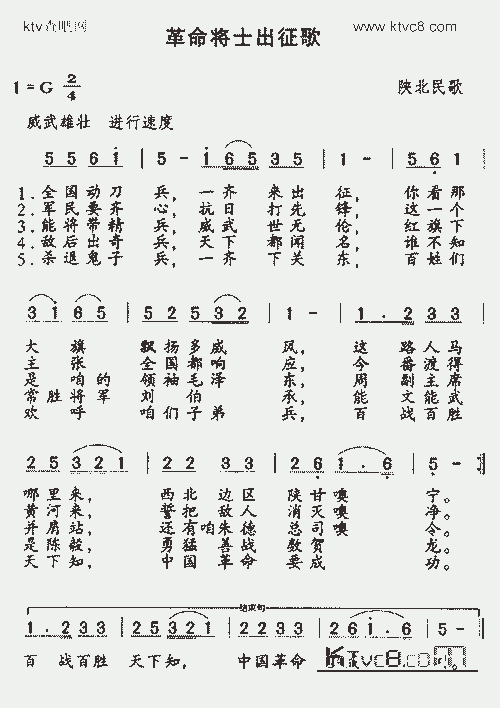 ktv杏吧网 www.ktvc8.com
革命将士出征歌
1=G 2/4 陕北民歌
威武雄壮 进行速度
5 5 6 1 | 5 - 1 6 5 3 5 | 1 - | 5 6 1 |
1.全国动刀 兵，一齐 来出 征，你看那
2.军民要齐 心，抗日 打先 锋，这一个
3.能将带精 兵，威武 世无 伦，红旗下
4.敌后出奇 兵，天下 都闻 名，谁不知
5.杀退鬼子 兵，一齐 下关 东，百姓们
3 1 6 5 | 5 2 5 3 2 | 1 - | 1 . 2 3 3 |
大 旗 飘扬多威 风，这 路人马
主 张 全国都响 应，今 番渡得
是咱的 领袖毛泽 东，周 副主席
常胜将军 刘伯 承，能 文能武
欢 呼 咱们子弟 兵，百 战百胜
2 5 3 2 1 | 2 2 3 3 | 2 6 1 . 6 | 5 - :|
哪里来， 西北边区 陕甘噢 宁。
黄河来， 誓把敌人 消灭噢 净。
并肩站， 还有咱朱德 总司噢 令。
是陈毅， 勇猛善战 数贺 龙。
天下知， 中国革命 要成 功。
结束句
1 . 2 3 3 | 2 5 5 3 2 1 | 2 2 3 3 | 2 6 1 . 6 | 5 -
百 战百胜 天下知， 中国革命
KTvc8.com